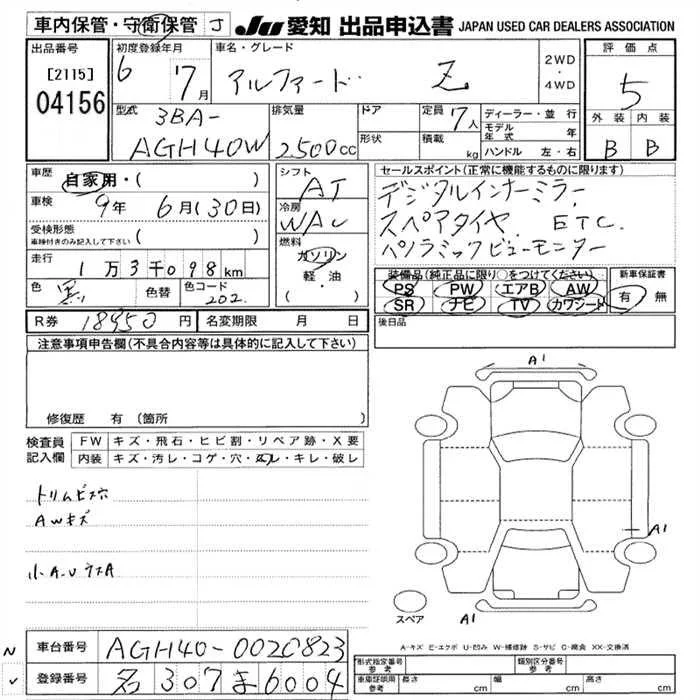 車内保管・守衛保管 J JU 愛知 出品申込書 JAPAN USED CAR DEALERS ASSOCIATION
出品番号
[2115]
04156
初度登録年月
6 7月
車名・グレード
アルファード Z
2WD
・
4WD
評価点
5
外装 内装
B B
型式
3BA-
AGH40W
排気量
2500cc
ドア
形状
定員 7人
積載 kg
ディーラー・並行
モデル年式 年
ハンドル 左・右
車歴
自家用・( )
車検 9年 6月(30日)
受検形態
車検付きのみ記入して下さい ( )
走行 1万3千098km
色 黒 色替 色コード 202
シフト AT
冷房 WAC
燃料
ガソリン
軽・油
( ・ )
セールスポイント(正常に機能するものに限ります)
デジタルインナーミラー
スペアタイヤ. ETC.
パノラミックビューモニター
装備品(純正品に限り○をつけてください)
PS PW エアB AW
SR ナビ TV カワシート
新車保証書
有・無
後日品
R券 18950円 名変期限 月 日
注意事項申告欄(不具合内容等は具体的に記入して下さい)
修復歴 有(箇所
検査員
記入欄
FW キズ・飛石・ヒビ割・リペア跡・X要
内装 キズ・汚レ・コゲ・穴・・キレ・破レ
トリムビス穴
AWキズ
小A・U
A1
A1
A1
スペア
A-キズ E-エクボ U-凹み W-補修跡 S-サビ C-腐食 XX-交換済
N 車台番号 AGH40-0020823
✓ 登録番号 名 307 ま 6004
形式指定番号 参考
類別区分番号 参考
車庫証明用 参考 長さ cm 幅 cm 高さ cm